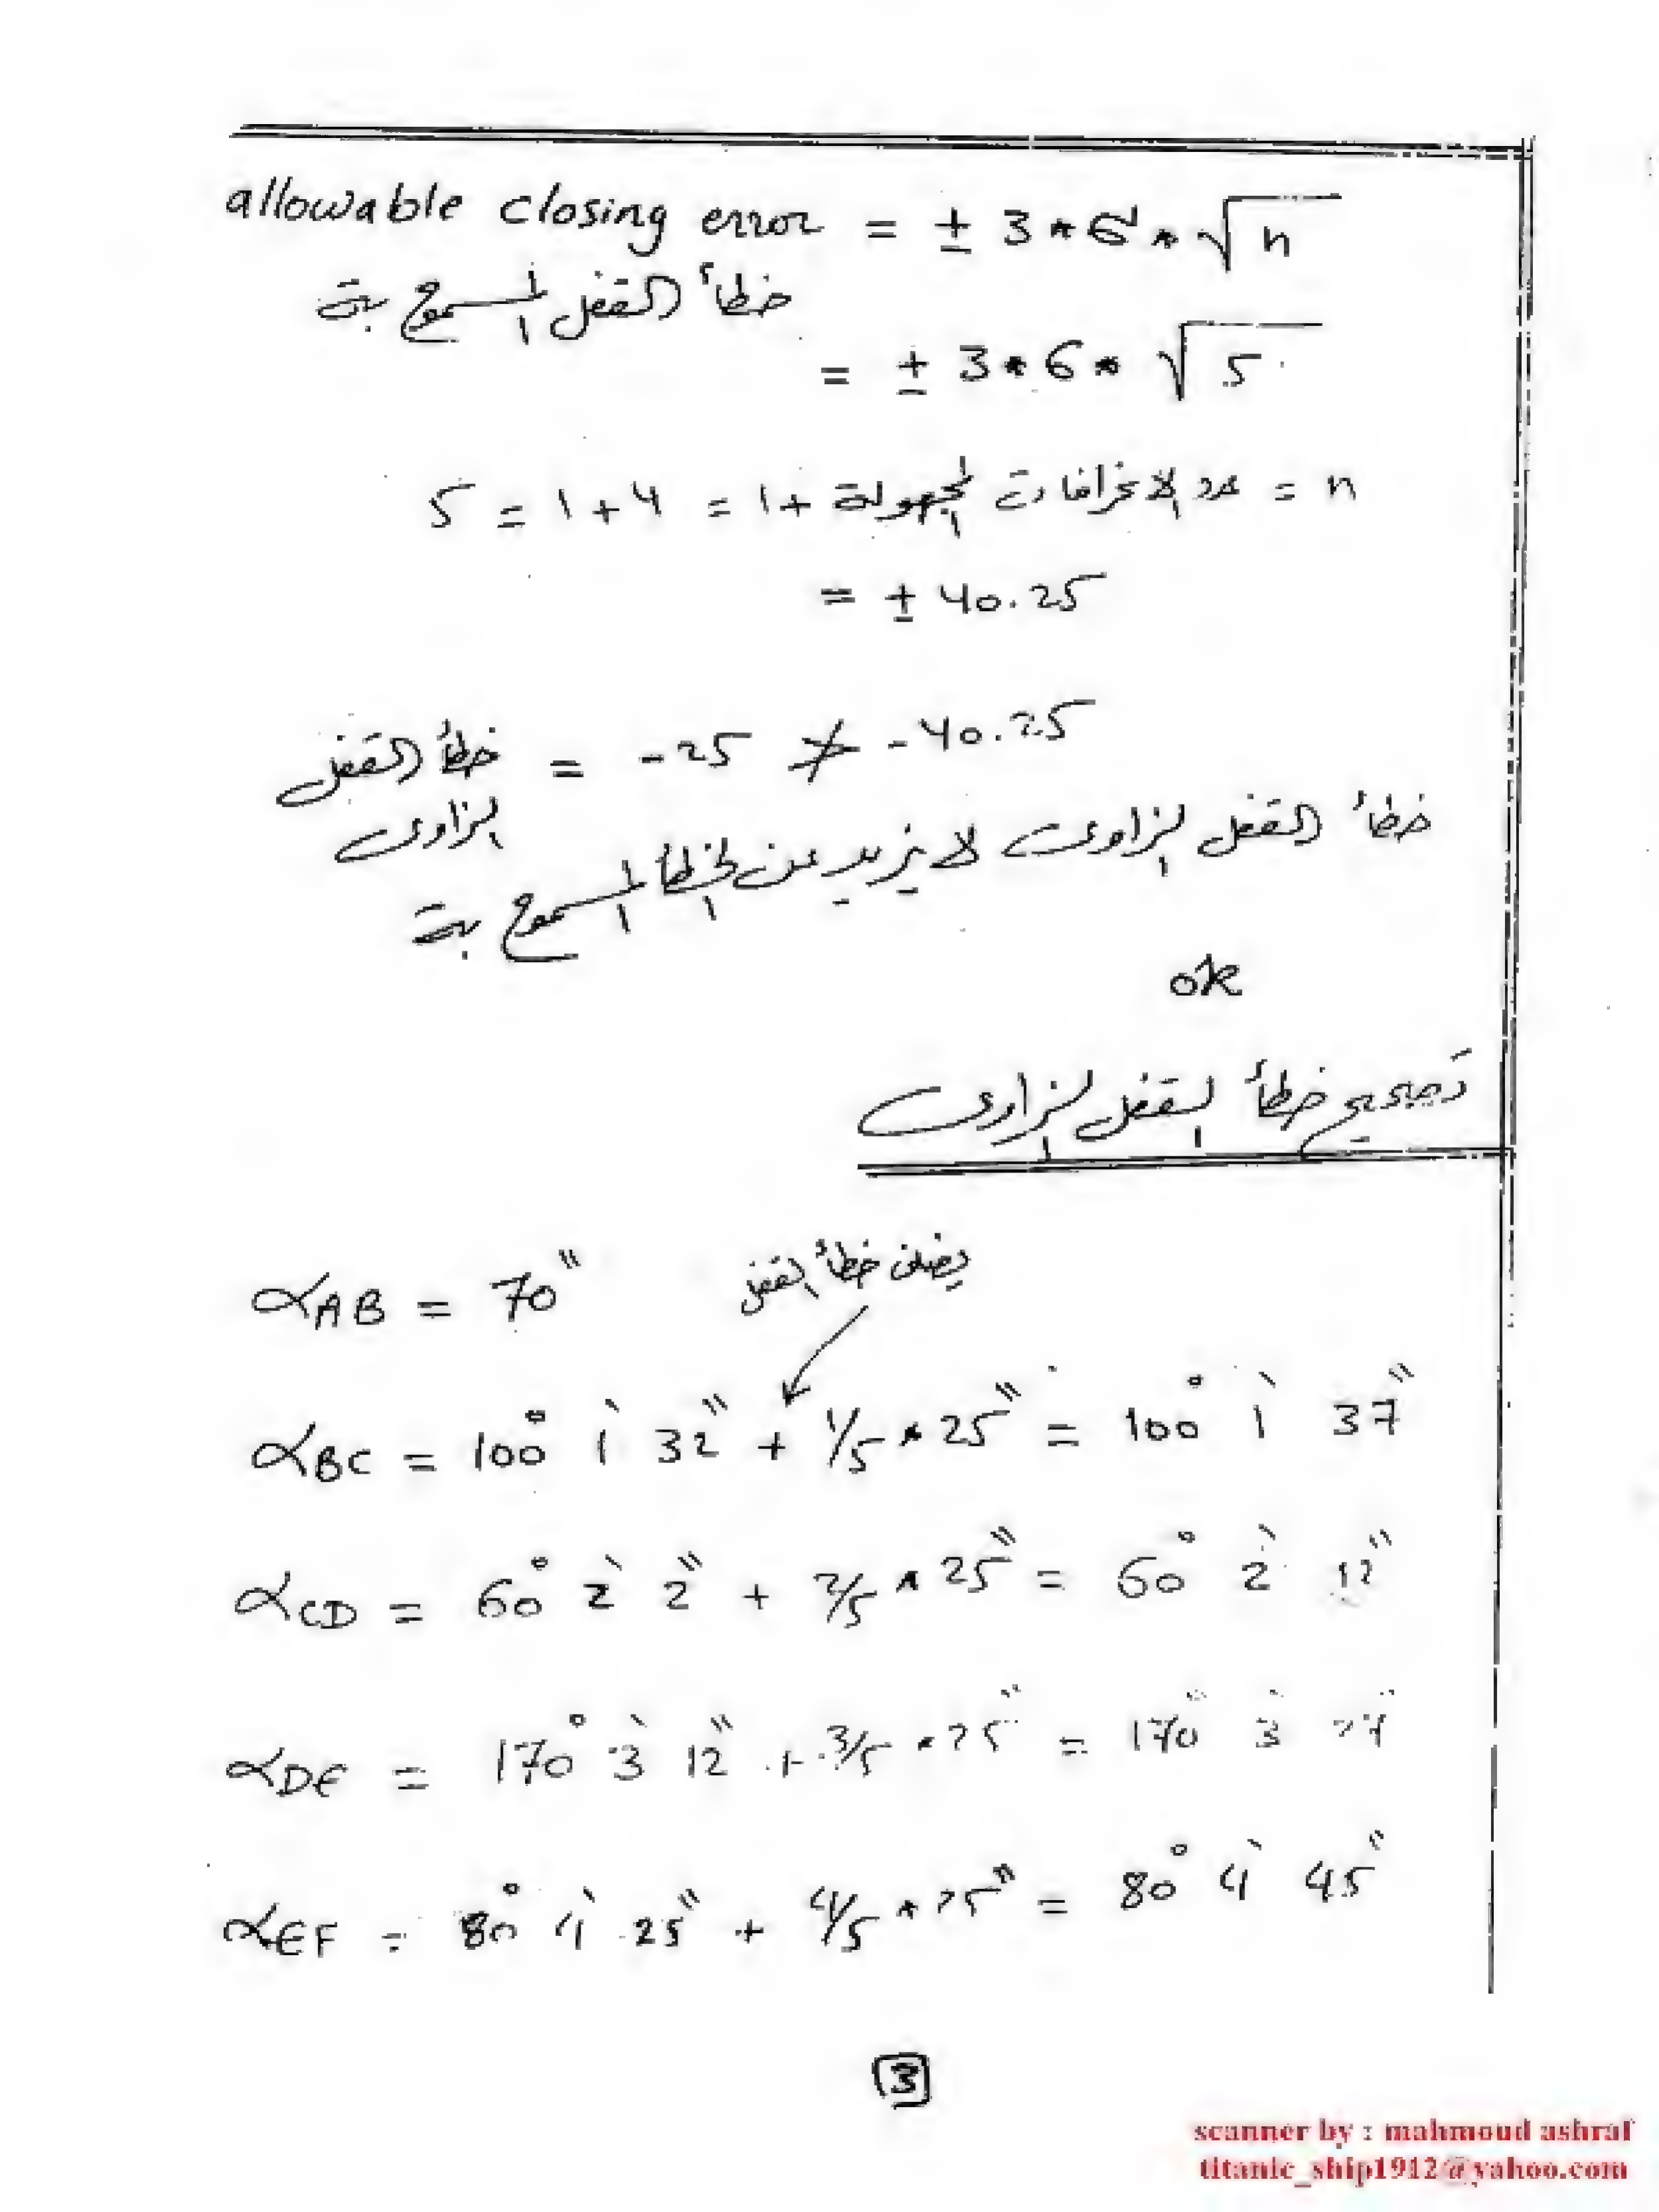 allowable closing error = ± 3 * σ * √n
خطأ القفل المسموح بة
= ± 3 * 6 * √5
n = عدد الانحرافات المجهولة + 1 = 4 + 1 = 5
= ± 40.25
خطأ القفل الزاوى = -25 ≯ -40.25
خطأ القفل الزاوى لا يزيد عن الخطأ المسموح بة
ok
تصحيح خطأ القفل الزاوى
αAB = 70"
يضاف خطأ القفل
αBC = 100° 1' 32" + 1/5 * 25" = 100° 1' 37"
αCD = 60° 2' 2" + 2/5 * 25" = 60° 2' 12"
αDE = 170° 3' 12" + 3/5 * 25" = 170° 3' 27"
αEF = 80° 4' 25" + 4/5 * 25" = 80° 4' 45"
3
scanner by : mahmoud ashraf
titanic_ship1912@yahoo.com